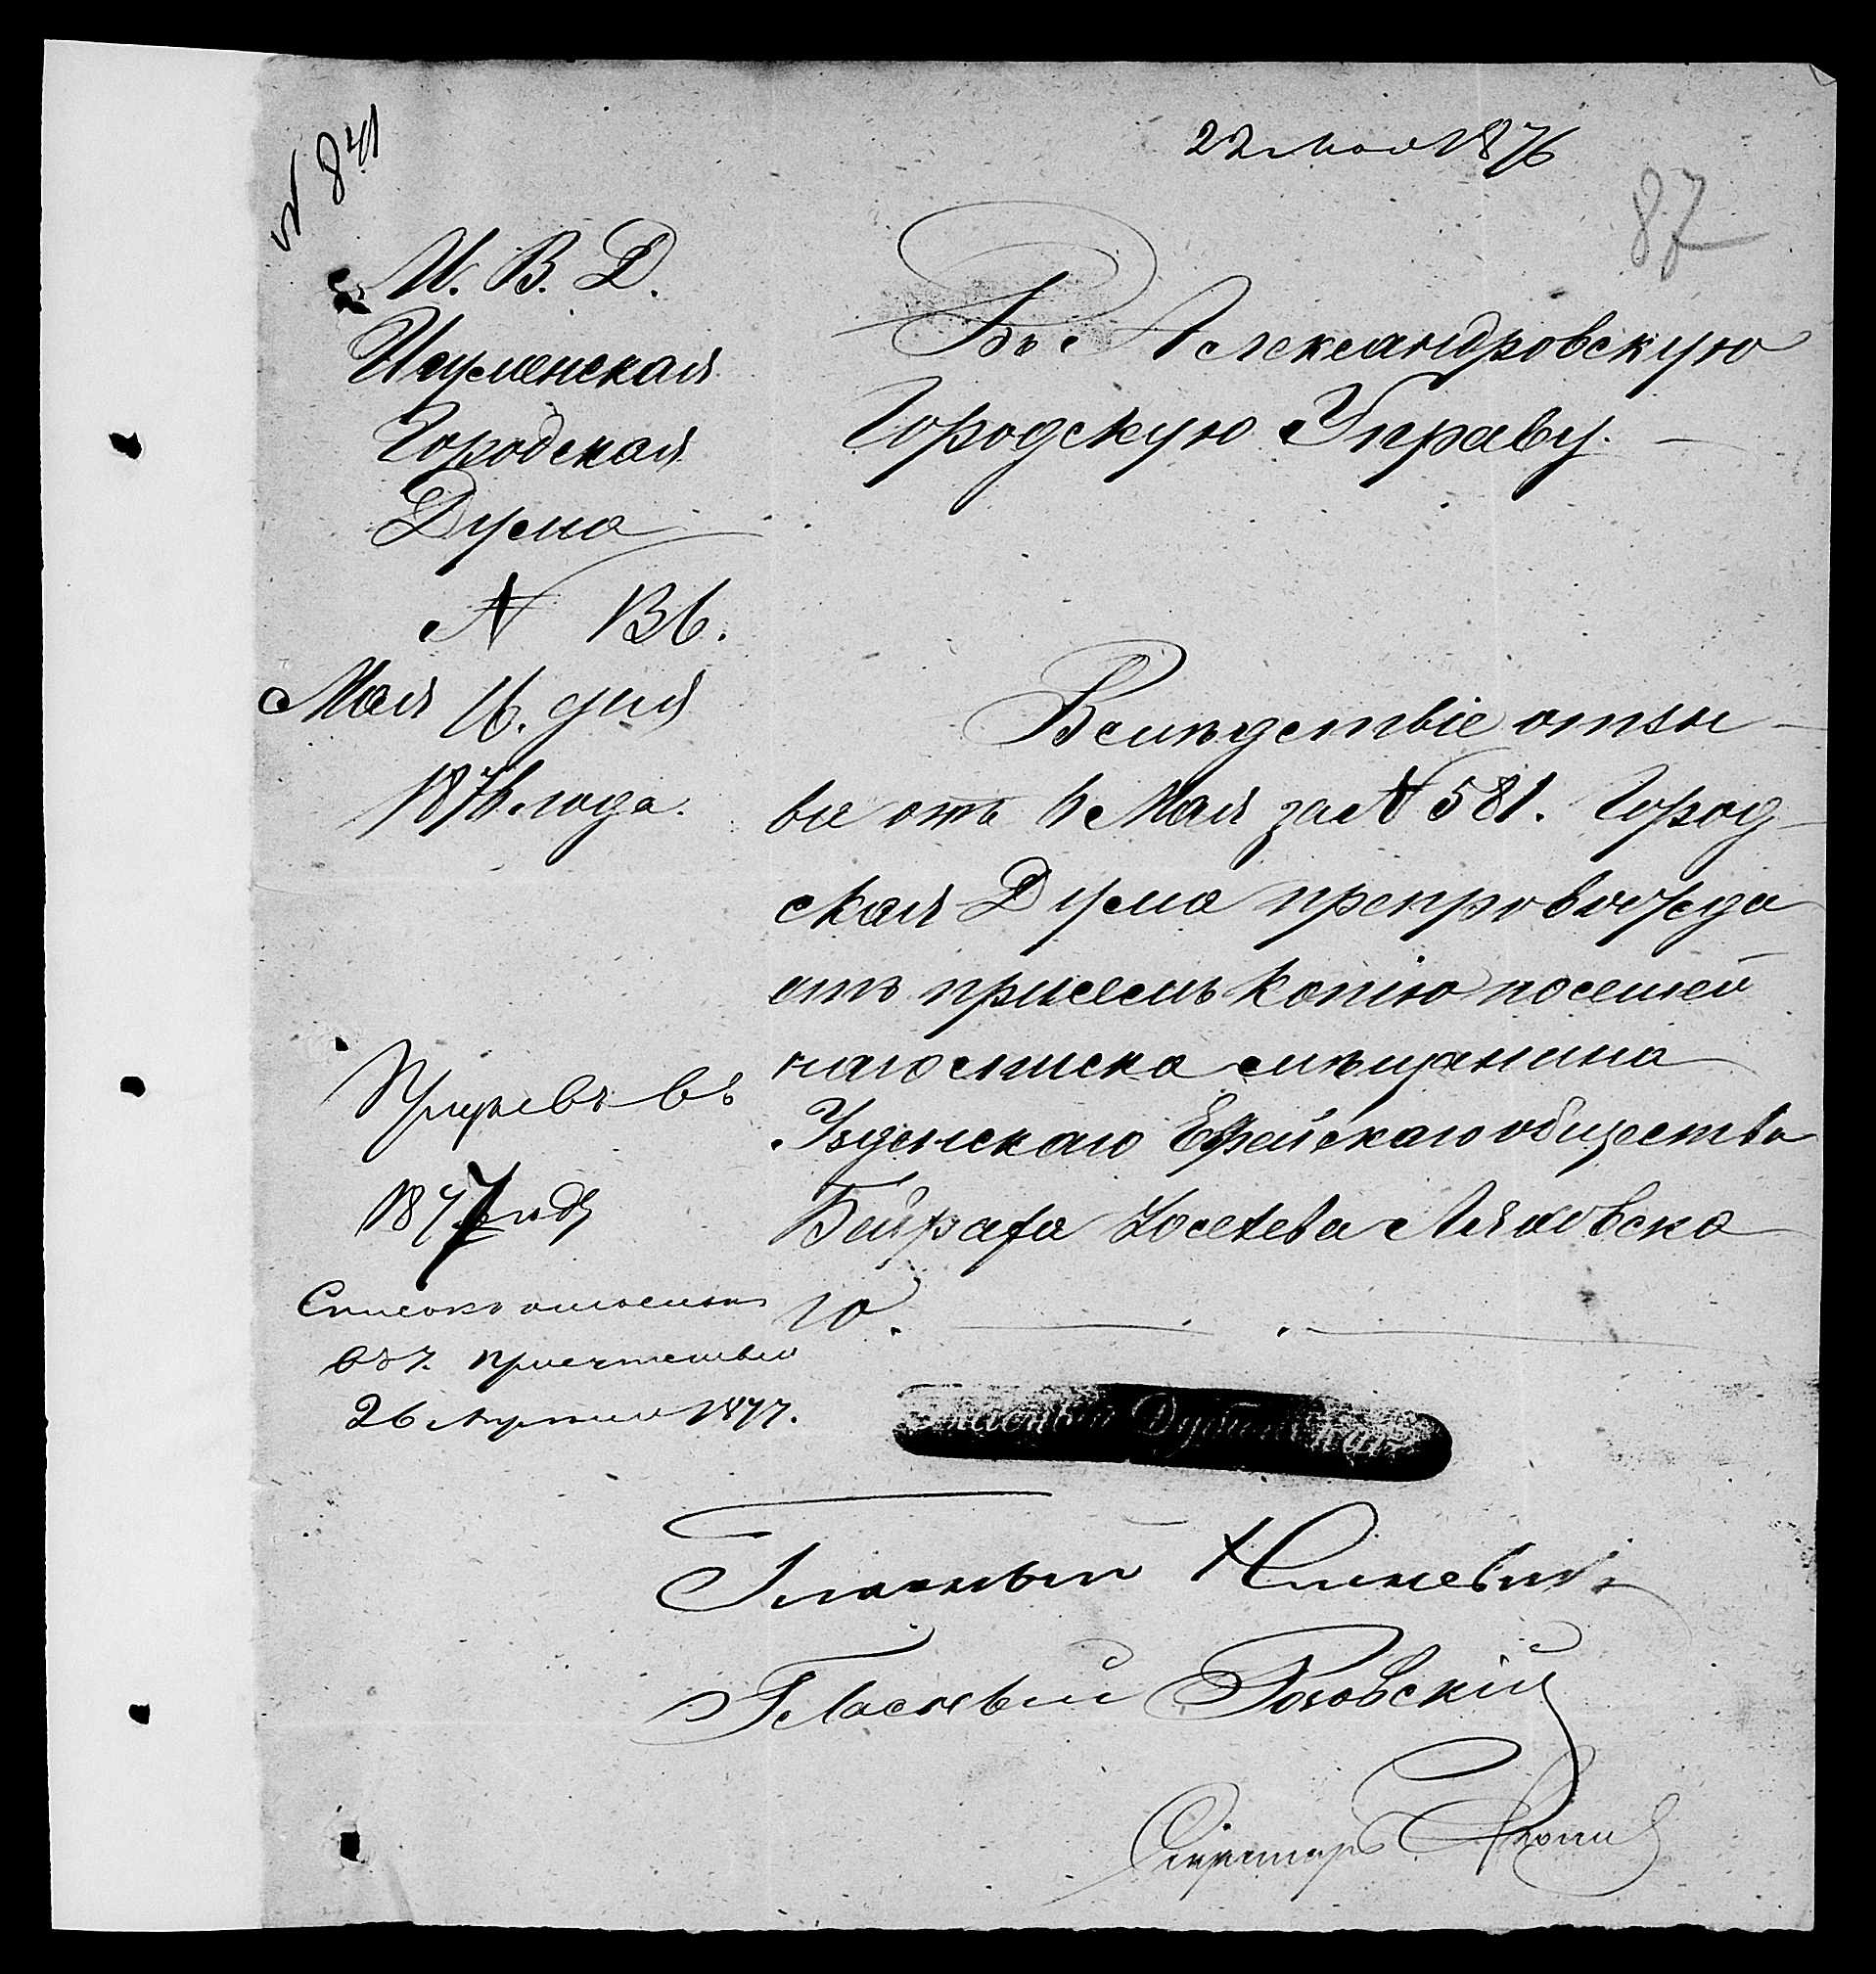 № 841
22 мая 1876
87
М. В. Д.
Игуменская
Городская
Дума
№ 136.
Мая 16. дня
1876 года.
Въ Александровскую
Городскую Управу.
Вслѣдствіе отзы-
ва отъ 6 Мая за № 581. Город-
ская Дума препровожда
етъ при семъ копію посемей
наго списка мѣщанина
Узденскаго Еврейскаго общества
Иоселева Ляховска
го.
въ
1877 году
Списокъ
26 Апреля 1877.
Гласный
Гласный Раковскій
Секретарь